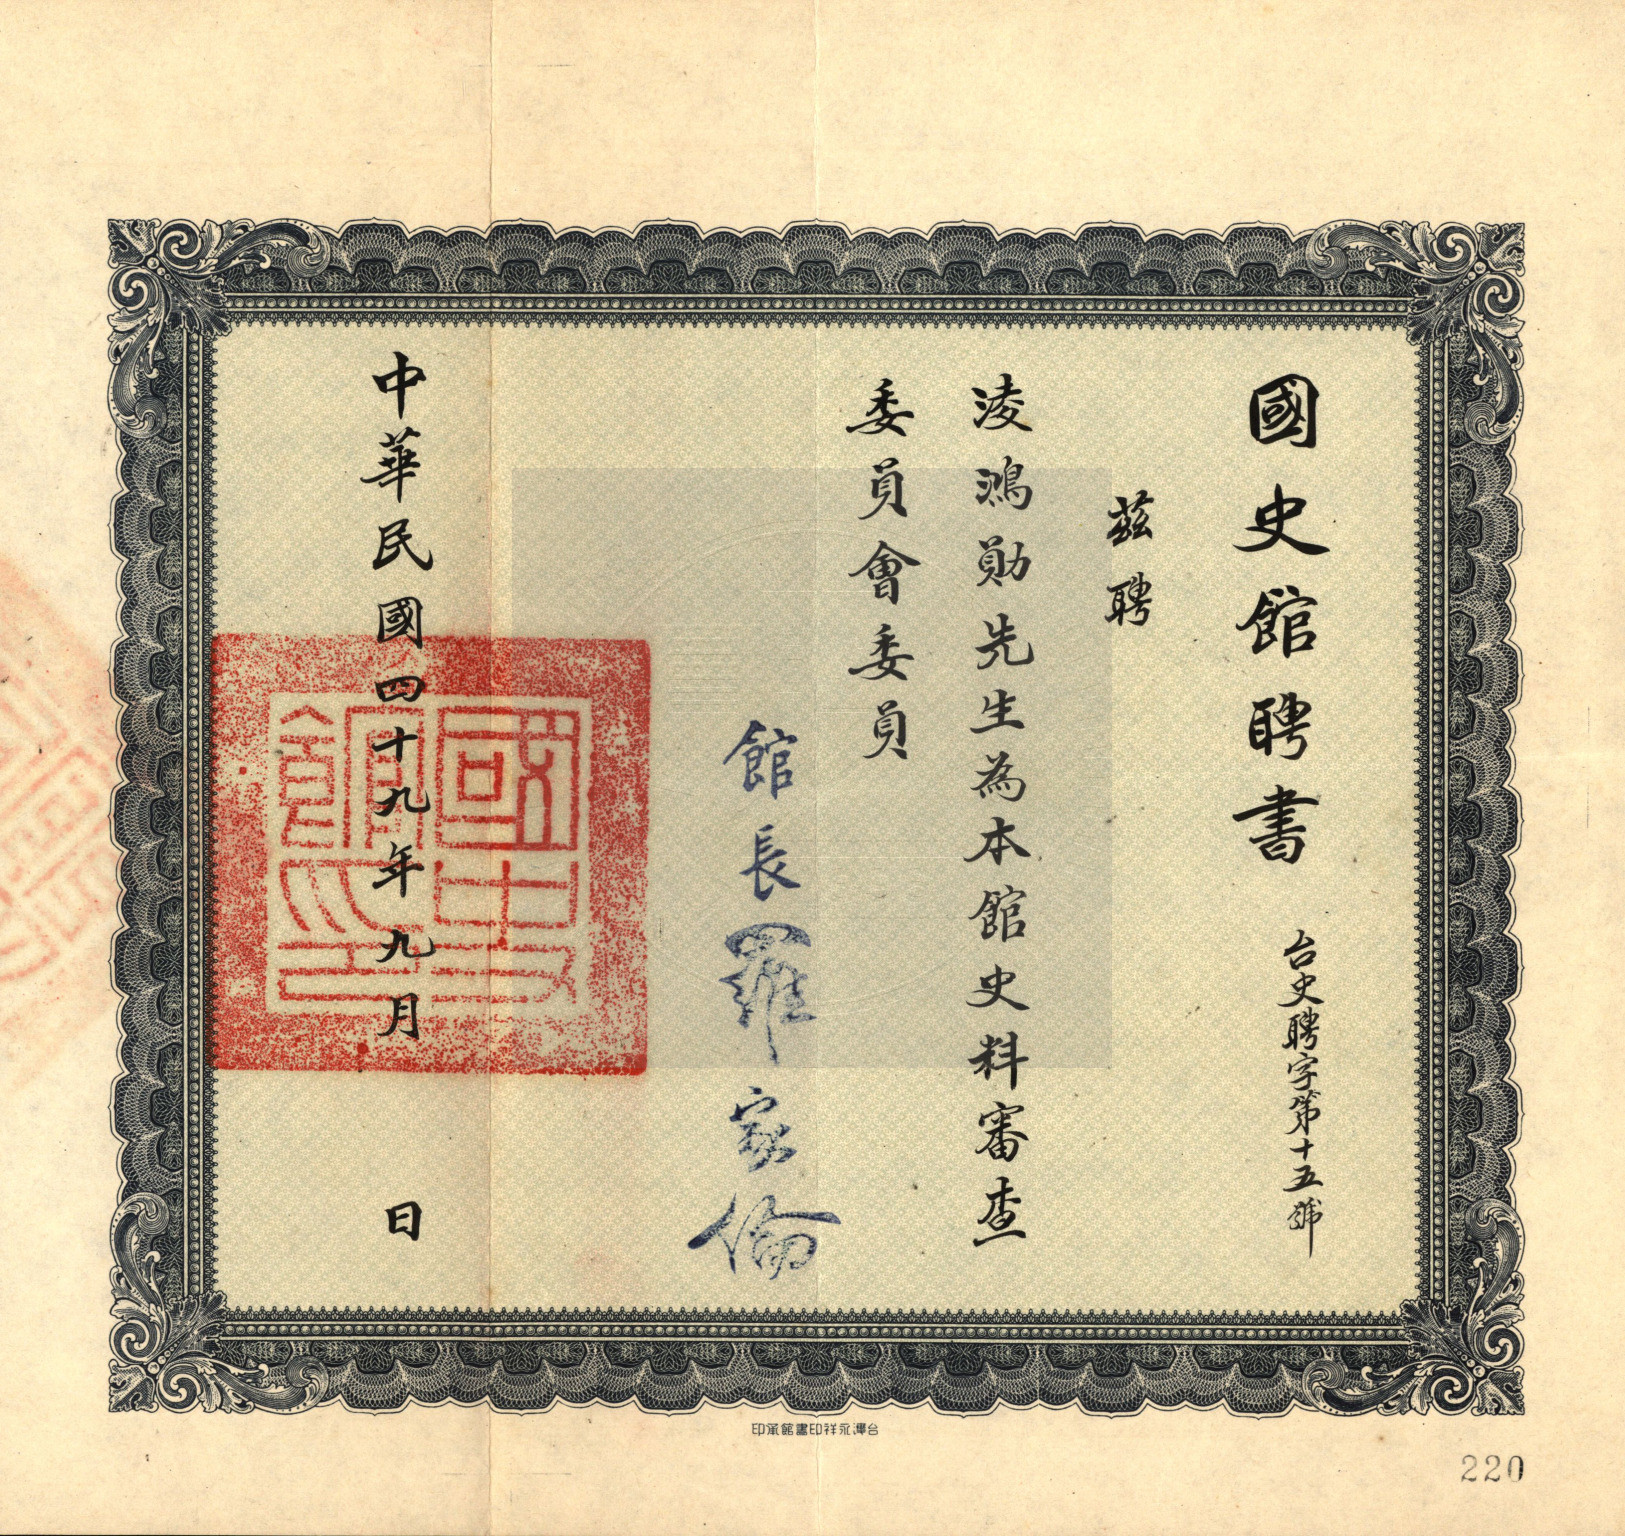 國史館聘書 台史聘字第十五號
茲聘
淩鴻勛先生為本館史料審查
委員會委員
館長羅家倫
中華民國四十九年九月 日
國史館印
台灣永祥印書館承印
220